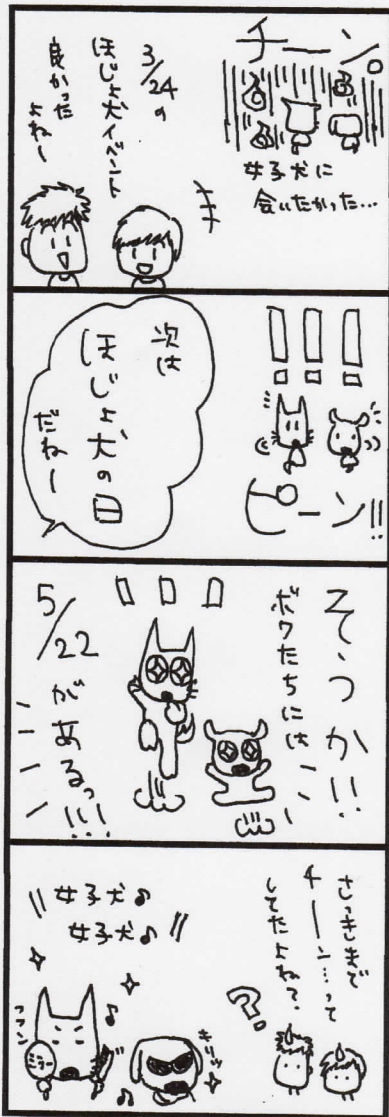 チーン。
女子犬に
会いたかった…
3/24の
ほじょ犬イベント
良かった
よねー
!!!
ピーン!!
次は
ほじょ犬の日
だねー
そっか!!
ボクたちには
5/22
があるっ!!!
さっきまで
チーン…って
してたよね?
?
女子犬♪
女子犬♪
フフン
ミラー
キリッ